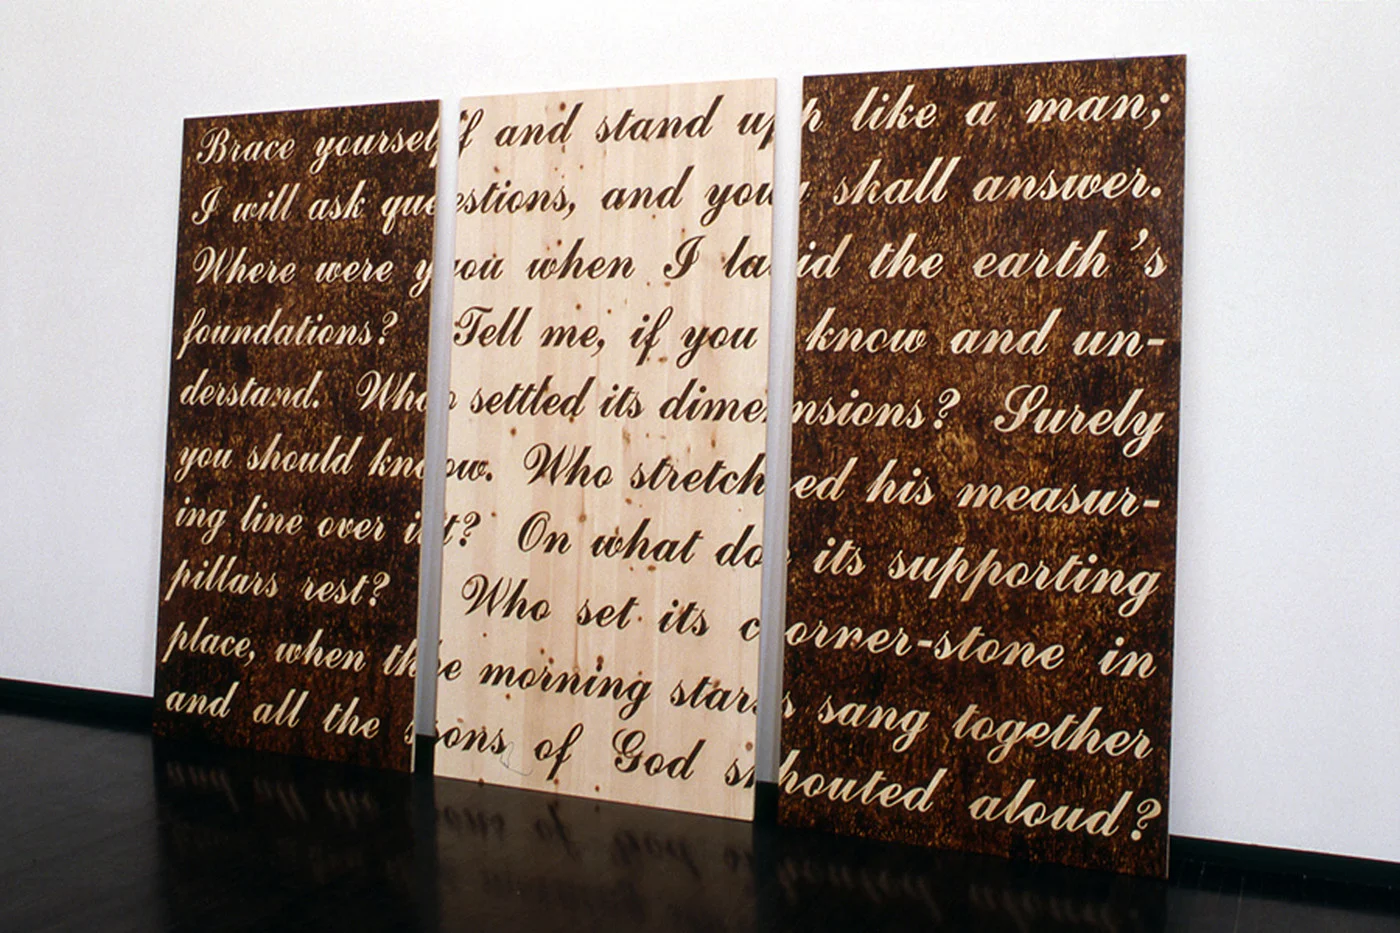 Brace yourself and stand up like a man;
I will ask questions, and you shall answer.
Where were you when I laid the earth's
foundations? Tell me, if you know and un-
derstand. Who settled its dimensions? Surely
you should know. Who stretched his measur-
ing line over it? On what do its supporting
pillars rest? Who set its corner-stone in
place, when the morning stars sang together
and all the sons of God shouted aloud?